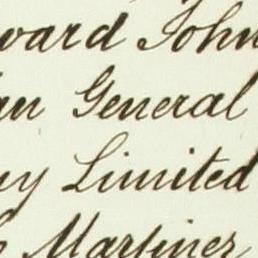 ward John
an General
ny Limited
Martiner